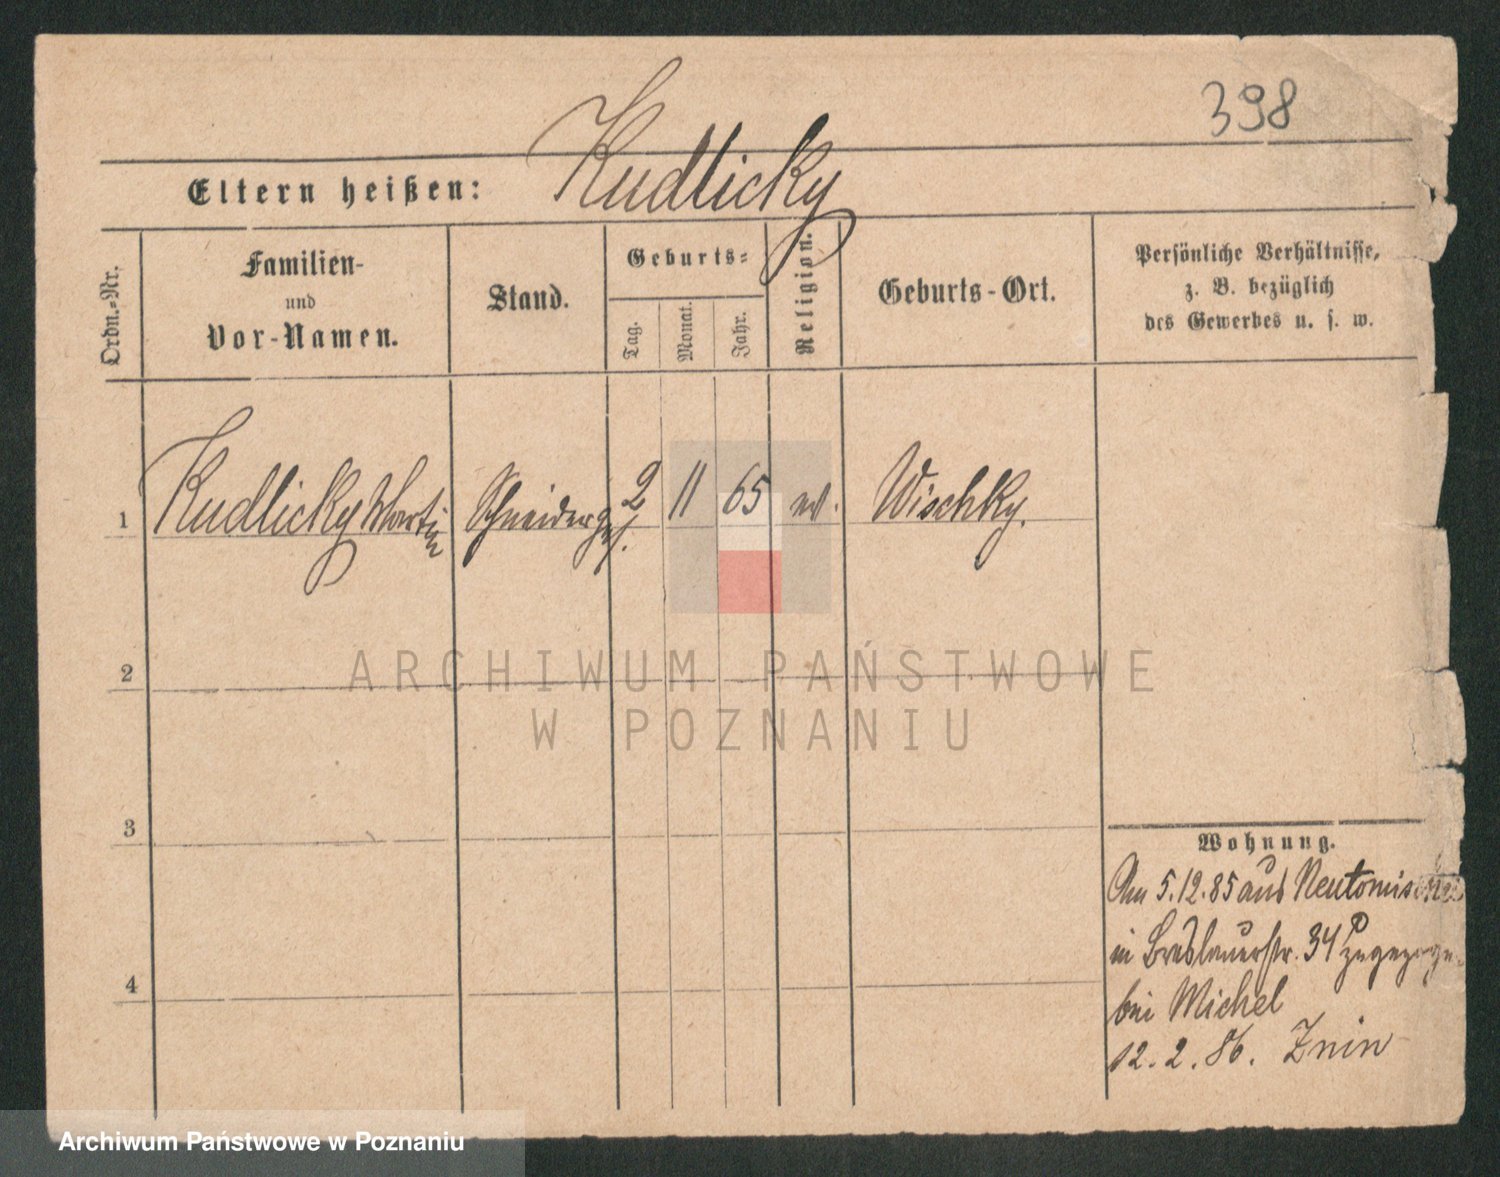 398
Eltern heißen: Kudlicky
Ordn.-Nr.
Familien-
und
Vor-Namen.
Stand.
Geburts-
Tag.
Monat.
Jahr.
Religion.
Geburts-Ort.
Persönliche Verhältnisse,
z. B. bezüglich
des Gewerbes u. s. w.
1 Kudlicky Martin Schneiderges. 2 11 65 Wischky.
2
3
4
Wohnung.
Am 5.12.85 aus
in Breslauerstr. 34
bei Michel
12.2.86. Znin
ARCHIWUM PAŃSTWOWE
W POZNANIU
Archiwum Państwowe w Poznaniu